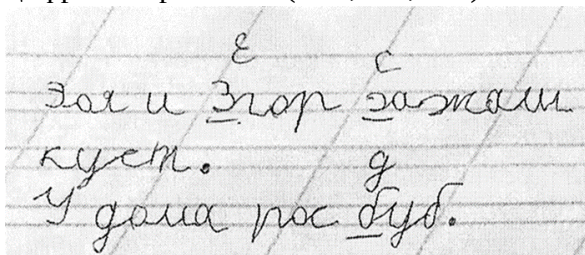 Е с
Зоя и Згор эажали
куст. д
У дома рос буб.